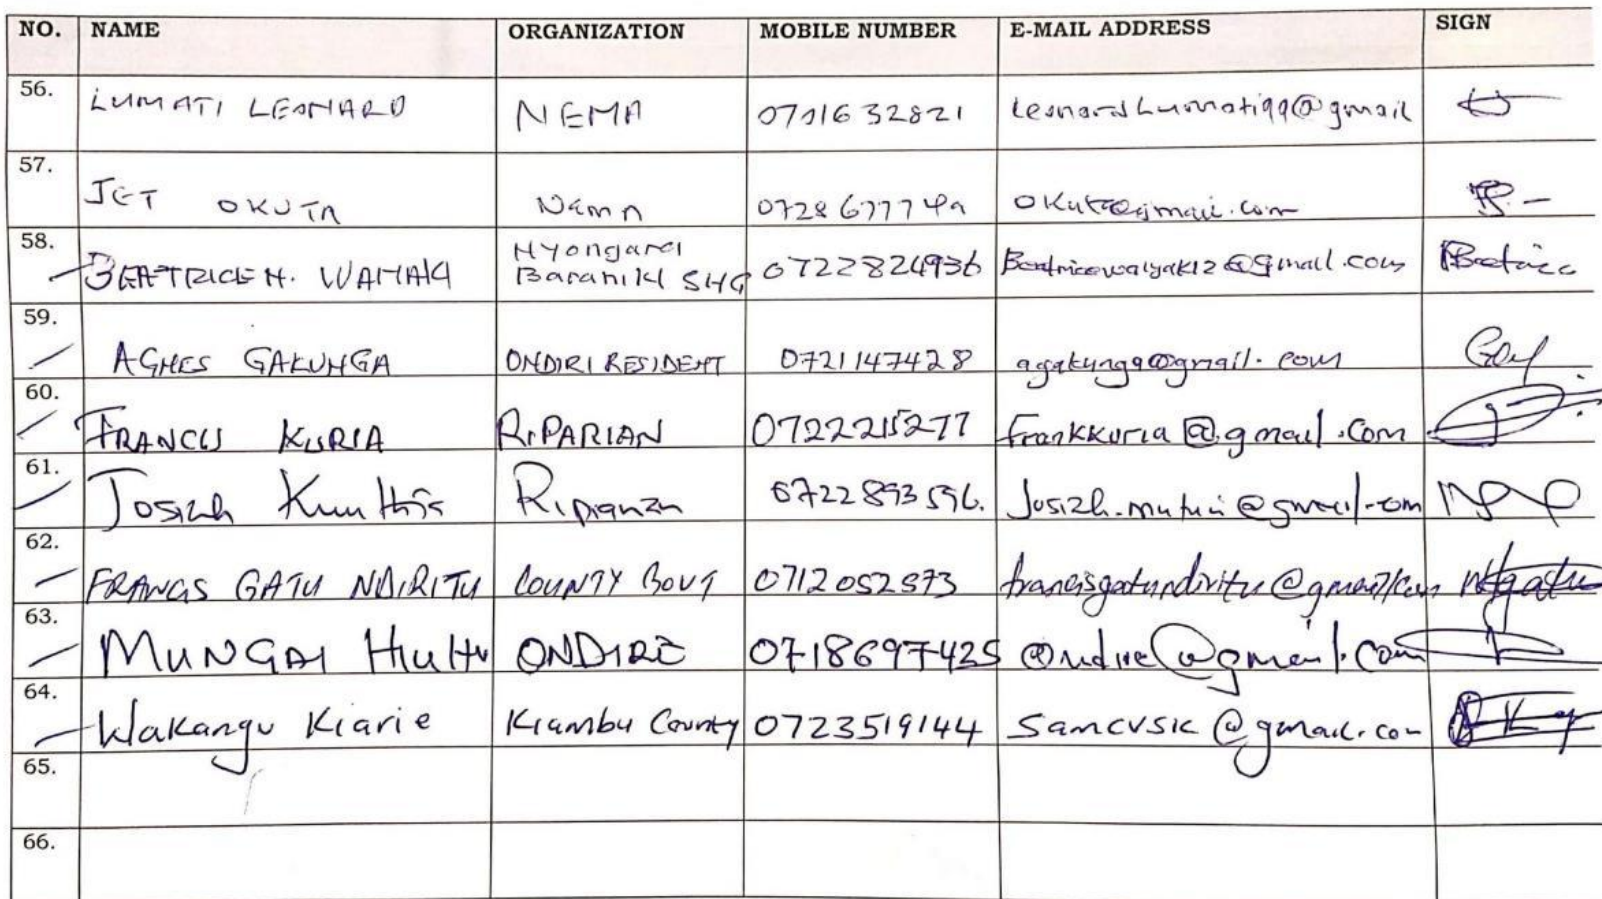 NO. NAME ORGANIZATION MOBILE NUMBER E-MAIL ADDRESS SIGN
56. LUMATI LEONARD NEMA 0701632821 Leonardlumati99@gmail
57. JET OKUTA Nema 0728677749 okuta@gmail.com
58. BEATRICE N. Nyongara
Baraniki SHG 0722824936 @gmail.com Beatrice
59. AGNES GAKUNGA ONDIRI RESIDENT 0721147428 agakunga@gmail.com
60. FRANCIS KURIA RIPARIAN 0722215277 frankkuria@gmail.com
61. Josiah Riparian 0722893596. Josiah.mutuii@gmail.com
62. FRANCIS GATU NDIRITU COUNTY GOVT 0712052573 francisgatundiritu@gmail.com
63. MUNGAI ONDIRI 0718697425 @gmail.com
64. Wakangu Kiarie Kiambu County 0723519144 samcvsk@gmail.com
65.
66.